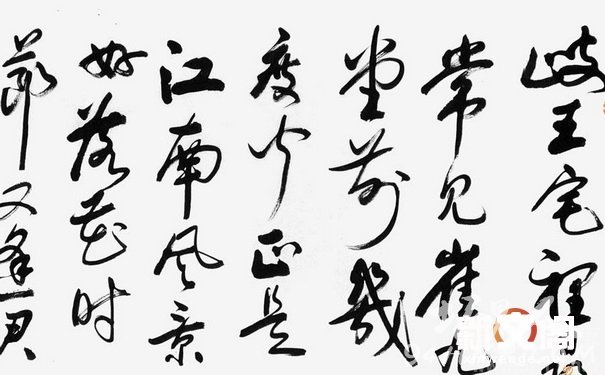 岐王宅裡
常见崔九
堂前幾
度闻正是
江南风景
好落花时
節又逢君